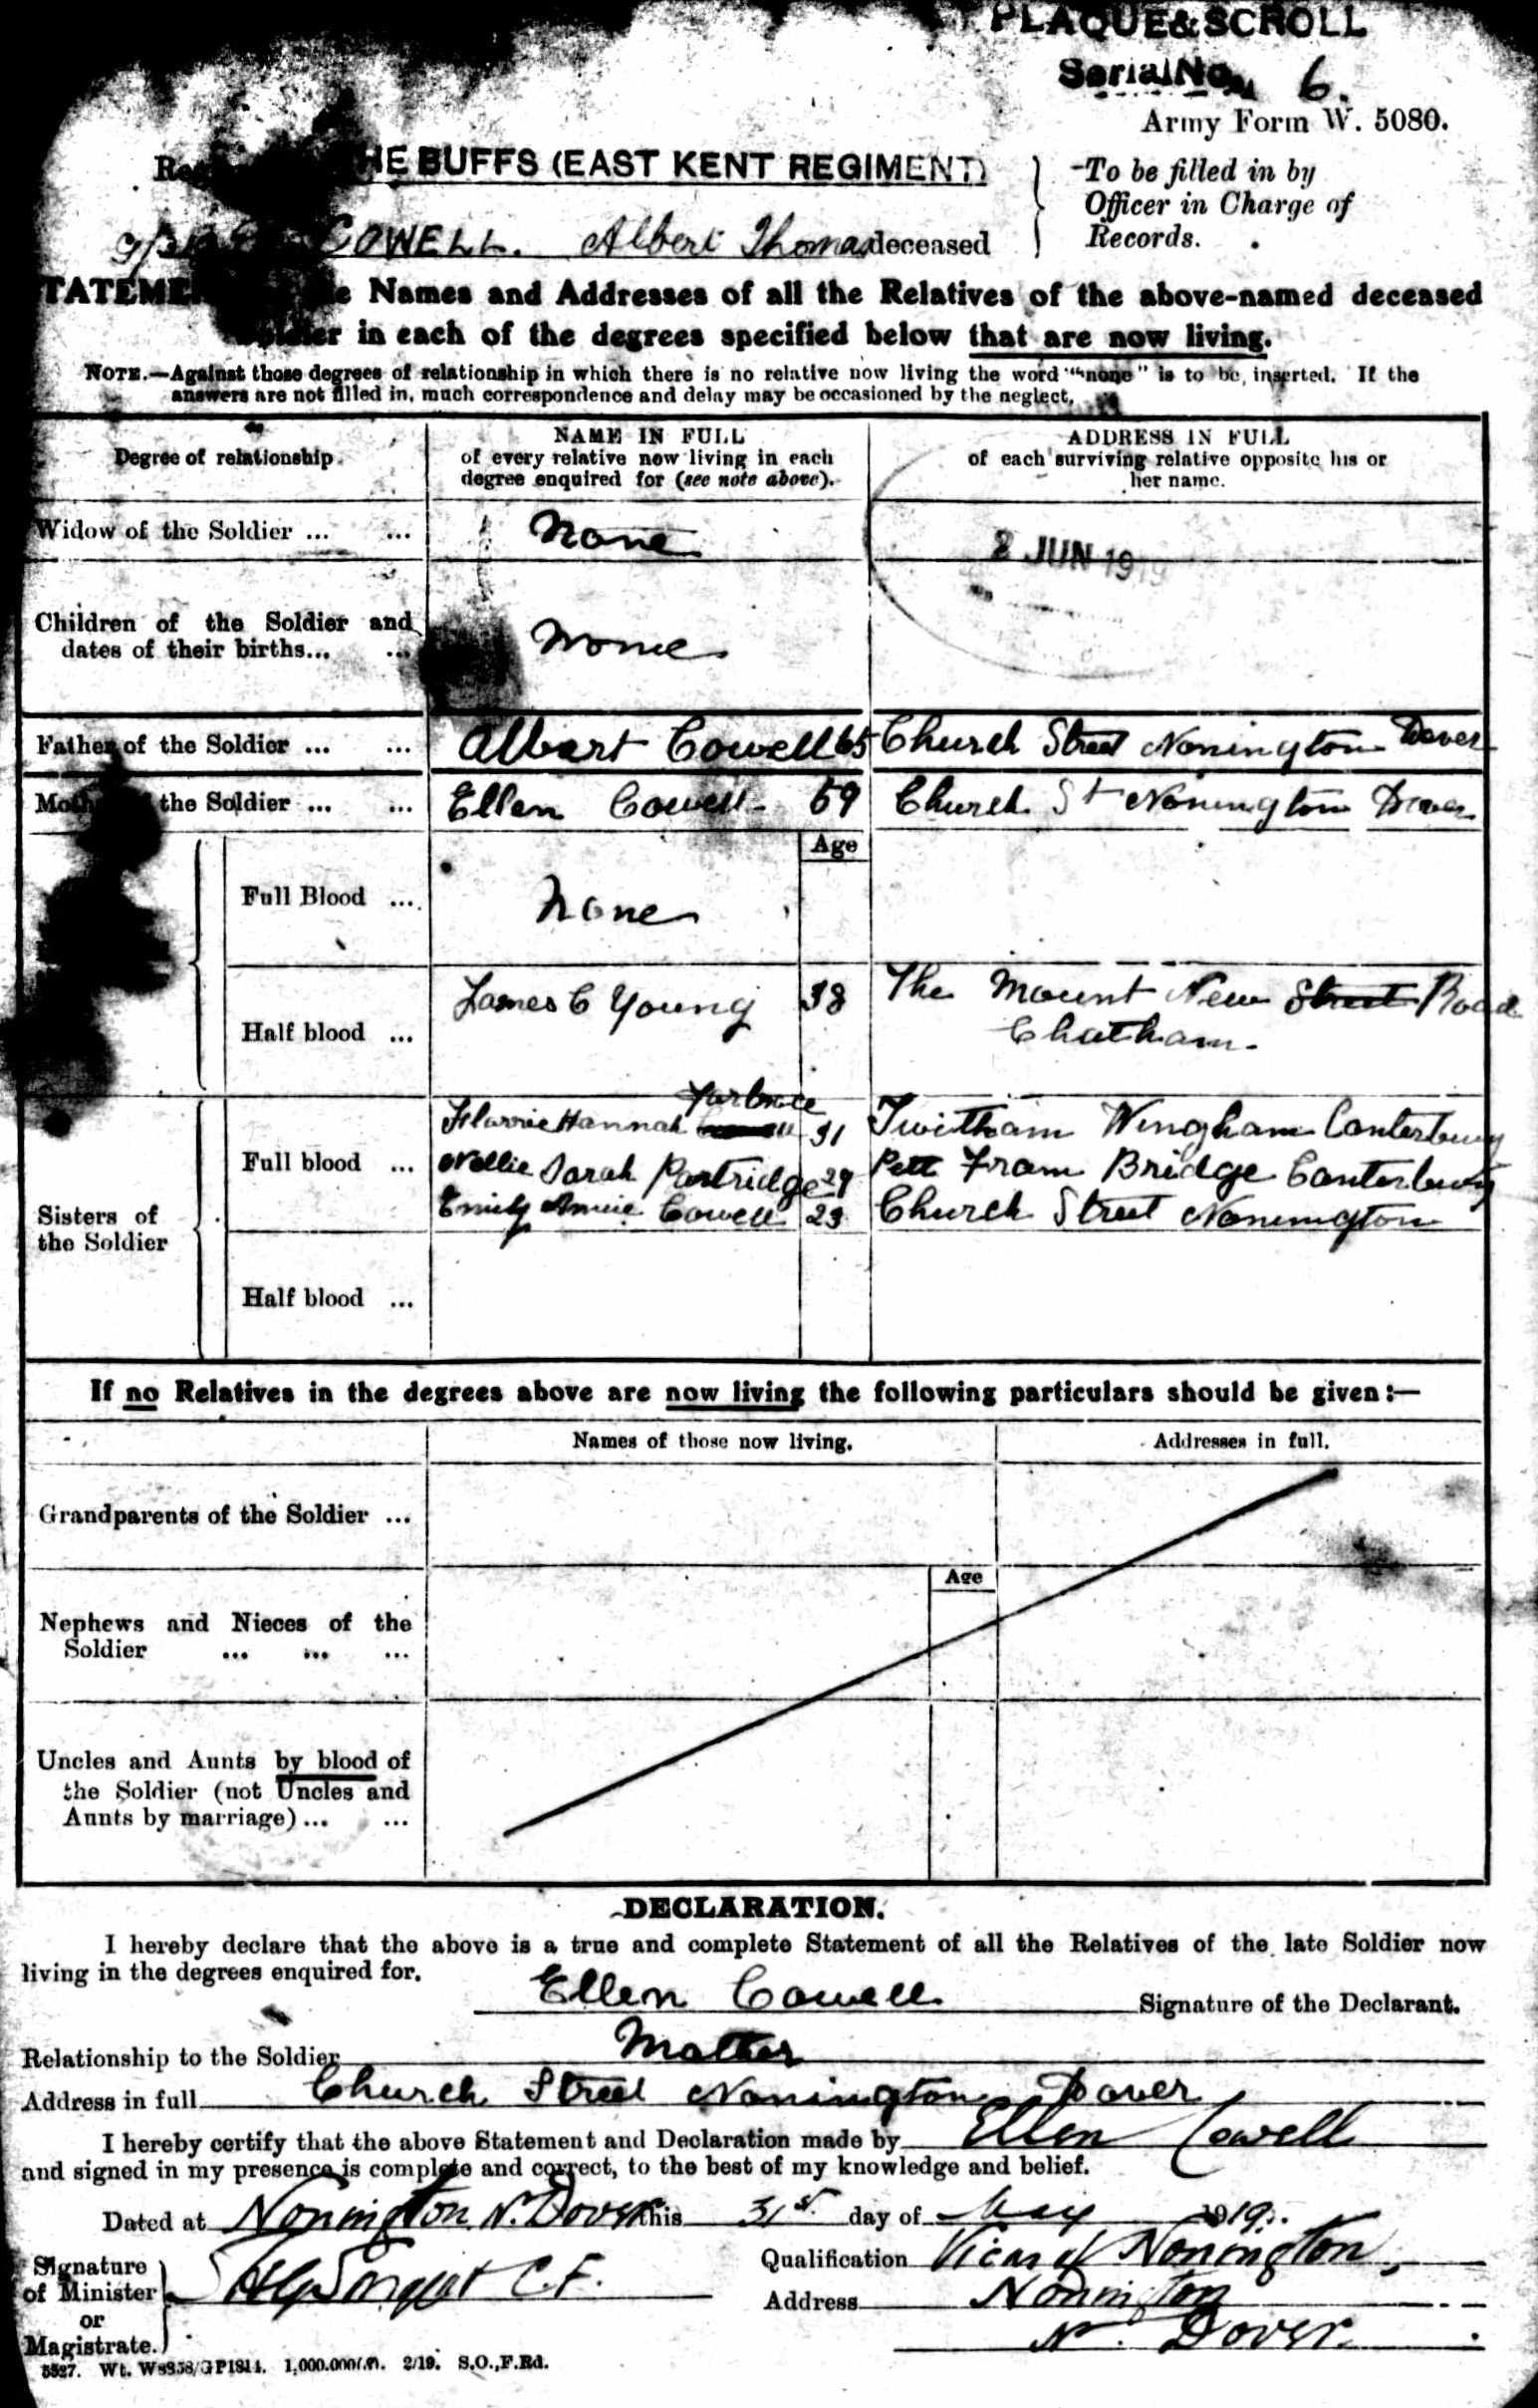 PLAQUE & SCROLL
Serial No. 6.
Army Form W. 5080.
THE BUFFS (EAST KENT REGIMENT)
-To be filled in by
Officer in Charge of
Records.
COWELL. Albert Thomas deceased
STATEMENT of the Names and Addresses of all the Relatives of the above-named deceased
Soldier in each of the degrees specified below that are now living.
NOTE.—Against those degrees of relationship in which there is no relative now living the word "none" is to be inserted. If the
answers are not filled in, much correspondence and delay may be occasioned by the neglect.
Degree of relationship.
NAME IN FULL
of every relative now living in each
degree enquired for (see note above).
ADDRESS IN FULL
of each surviving relative opposite his or
her name.
Widow of the Soldier ... ... None
2 JUN 1919
Children of the Soldier and
dates of their births... ... None
Father of the Soldier ... ... Albert Cowell 65 Church Street Nonington Dover
Mother of the Soldier ... ... Ellen Cowell 59 Church St Nonington Dover
Age
Full Blood ... None
Half blood ... James C Young 38 The Mount New Street Road
Chatham.
Sisters of
the Soldier
Full blood ...
Florrie Hannah 31 Twitham Wingham Canterbury
Nellie Sarah Partridge 29 Pett Fram Bridge Canterbury
Emily Annie Cowell 23 Church Street Nonington
Half blood ...
If no Relatives in the degrees above are now living the following particulars should be given:—
Names of those now living. Addresses in full.
Grandparents of the Soldier ...
Age
Nephews and Nieces of the
Soldier ... ... ...
Uncles and Aunts by blood of
the Soldier (not Uncles and
Aunts by marriage)... ...
DECLARATION.
I hereby declare that the above is a true and complete Statement of all the Relatives of the late Soldier now
living in the degrees enquired for.
Ellen Cowell Signature of the Declarant.
Relationship to the Soldier Mother
Address in full Church Street Nonington Dover
I hereby certify that the above Statement and Declaration made by Ellen Cowell
and signed in my presence is complete and correct, to the best of my knowledge and belief.
Dated at Nonington Nr. Dover this 31st day of May 1919.
Signature
of Minister
or
Magistrate.
C.F.
Qualification Vicar of Nonington,
Address Nonington
Nr. Dover.
5527. 1,000,000 2/19. S.O.,F.Rd.